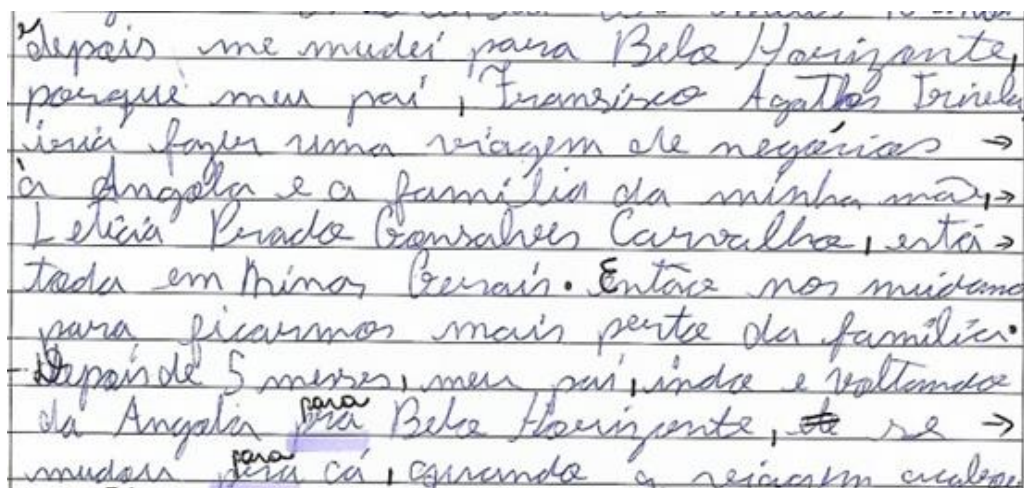 depois me mudei para Belo Horizonte,
porque meu pai, Fransisco Agathos
iria fazer uma viagem de negócios →
à Angola e a família da minha mãe, →
Letícia Prado Gonsalves Carvalho, está →
toda em Minas Gerais. Então nos mudamo
para ficarmos mais perto da família.
Depois de 5 meses, meu pai, indo e voltando
da Angola pra para Belo Horizonte, se →
mudou pra para cá, quando a viagem acabou